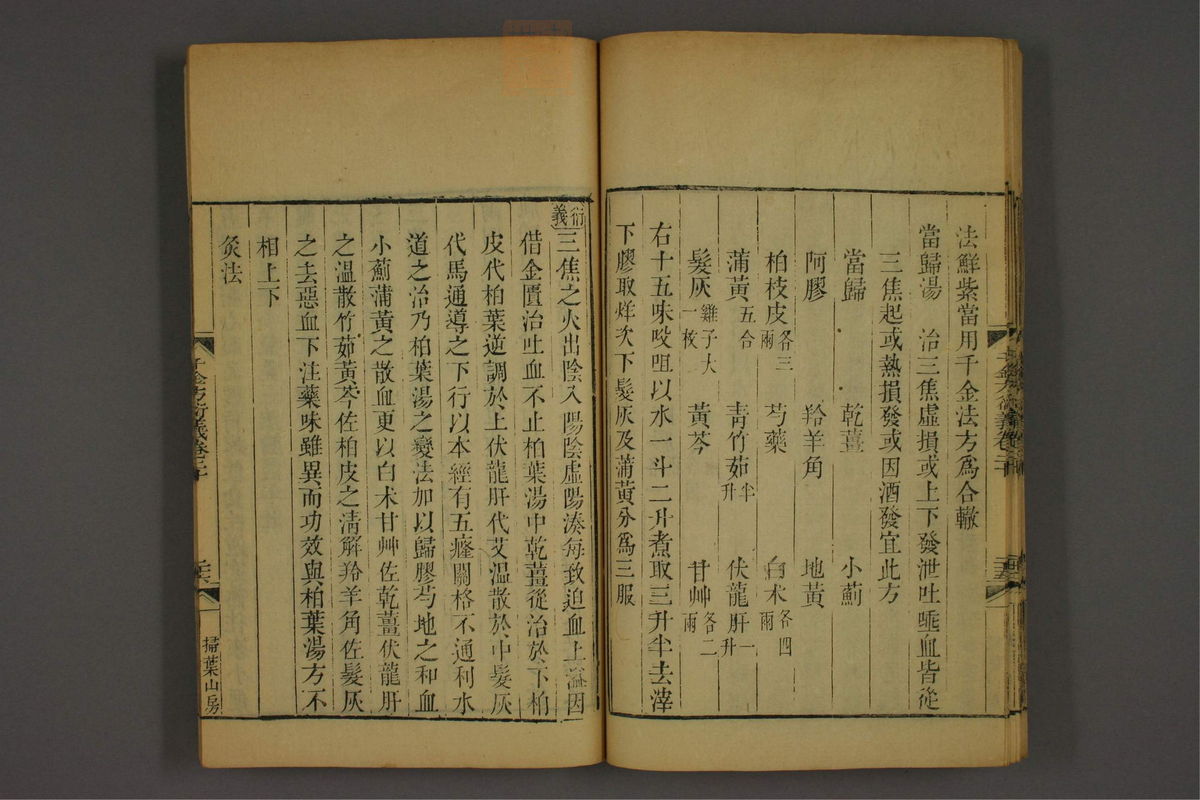 法鮮紫當用千金法方爲合轍
當歸湯　治三焦虛損或上下發泄吐唾血皆從
三焦起或熱損發或因酒發宜此方
當歸　乾薑　小薊
阿膠　羚羊角　地黃
柏枝皮各三兩　芍藥　白朮各四兩
蒲黃五合　靑竹茹半升　伏龍肝一升
髮灰雞子大一枚　黃芩　甘艸各二兩
右十五味㕮咀以水一斗二升煮取三升半去滓
下膠取烊次下髮灰及蒲黃分爲三服
衍義三焦之火出陰入陽陰虛陽湊每致迫血上溢因
借金匱治吐血不止柏葉湯中乾薑從治於下柏
皮代柏葉逆調於上伏龍肝代艾溫散於中髮灰
代馬通導之下行以本經有五癃關格不通利水
道之治乃柏葉湯之變法加以歸膠芍地之和血
小薊蒲黃之散血更以白朮甘艸佐乾薑伏龍肝
之溫散竹茹黃芩佐柏皮之淸解羚羊角佐髮灰
之去惡血下注藥味雖異而功效與柏葉湯方不
相上下
灸法
千金方衍義卷二十
掃葉山房